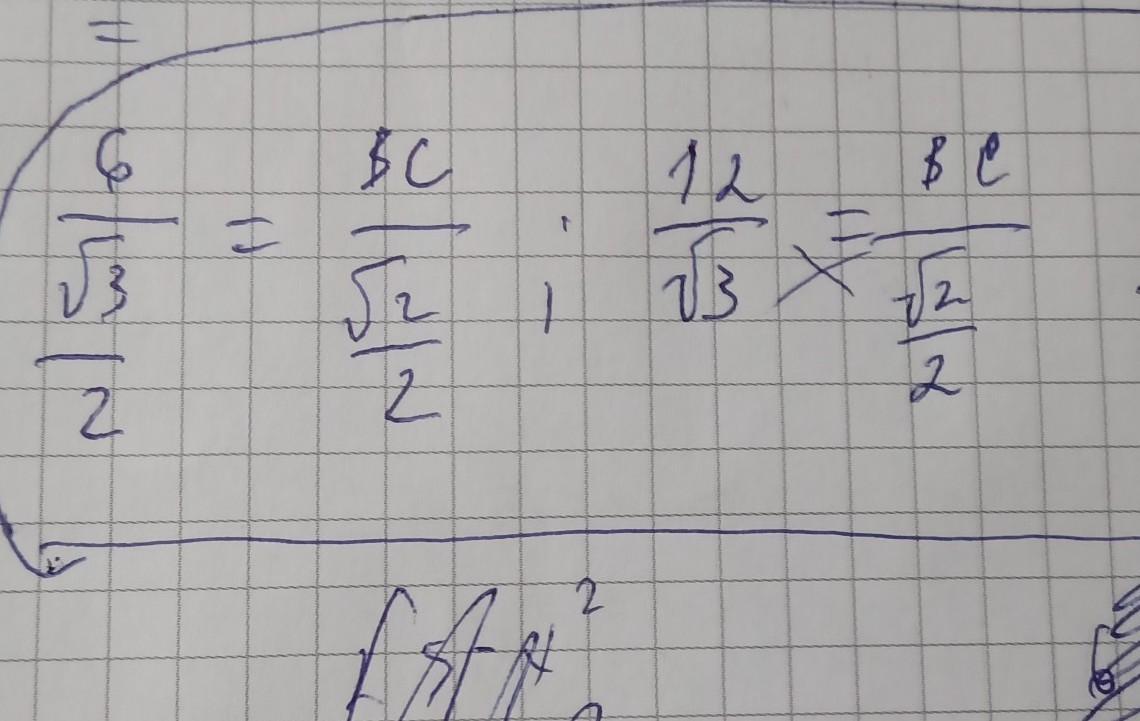 =
6/(√3/2) = BC/(√2/2) ; 12/√3 = BC/(√2/2)
2